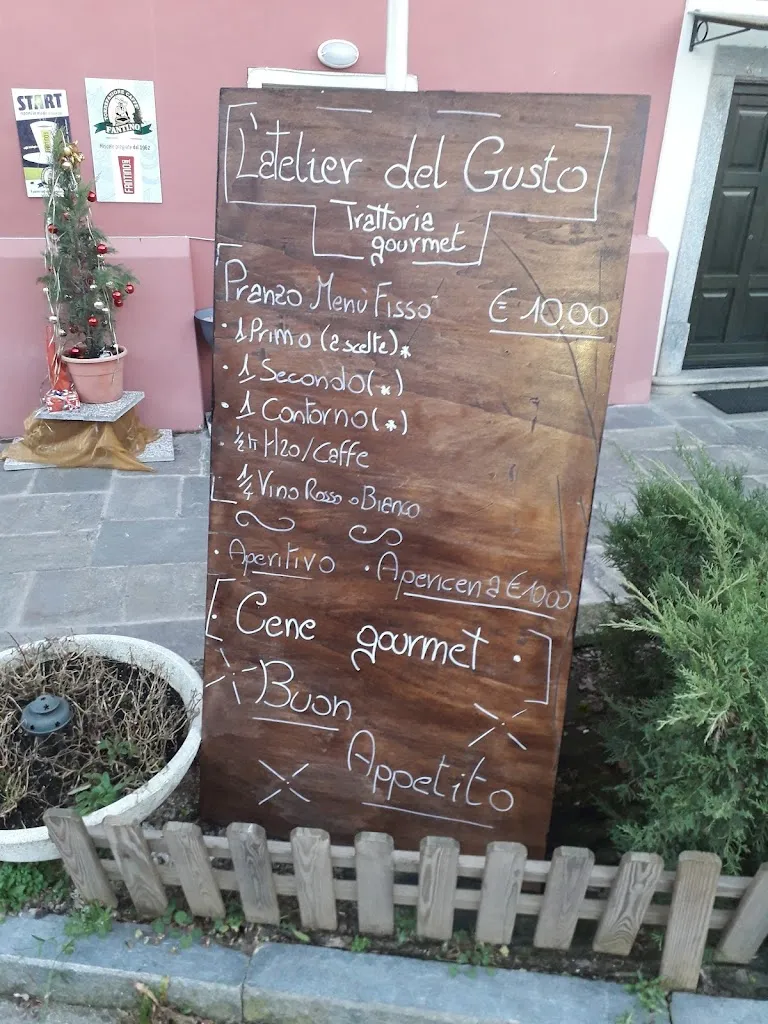 START
FANTINO
FANTINO
L'atelier del Gusto
Trattoria
gourmet
Pranzo Menù Fisso € 10,00
• 1 Primo (2 scelte) *
• 1 Secondo (*)
• 1 Contorno (*)
• ½ lt H2O/Caffe
¼ Vino Rosso o Bianco
• Aperitivo • Apericena € 10,00
• Cene gourmet •
Buon
Appetito